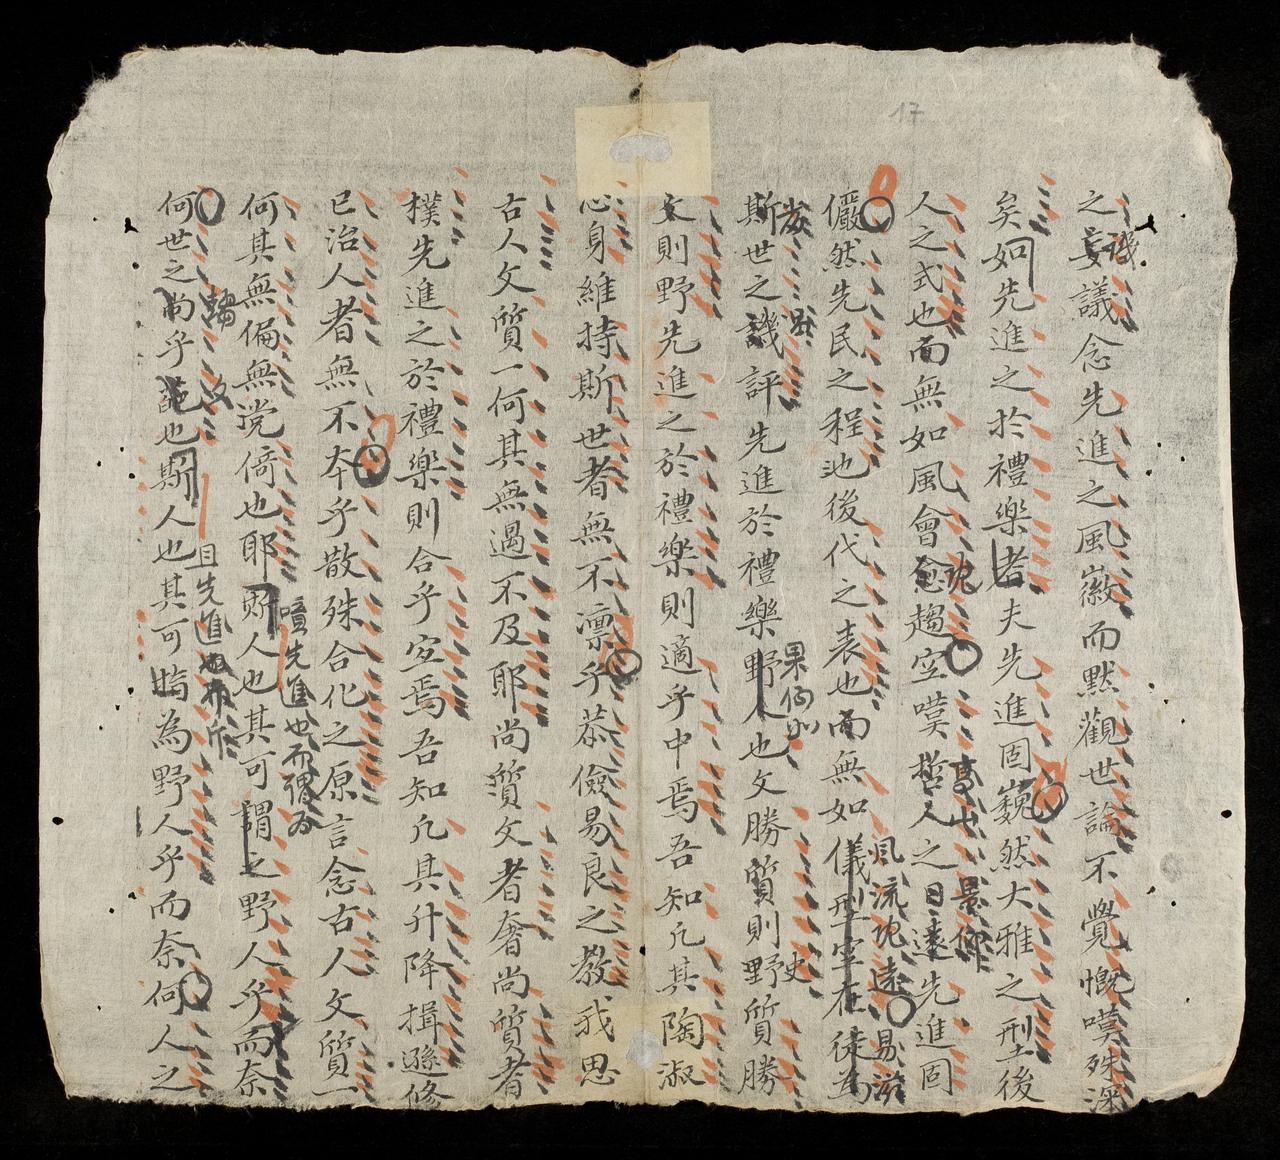 之妄議念先進之風徽而默觀世論不覺慨嘆殊深
譏
矣如先進之於禮樂者夫先進固巍然大雅之型後
人之式也而無如風會愈趨空嘆哲人之日遠先進固
景仰
儼然先民之程也後代之表也而無如儀型空在徒為
風流
遠
易滋
斯世之譏評先進於禮樂野人也文勝質則野質勝
史
文則野先進之於禮樂則適乎中焉吾知凡其陶淑
身維持斯世者無不凛乎恭儉易良之教我思
古人文質一何其無過不及耶尚質文者奢尚質者
樸先進之於禮樂則合乎宜焉吾知凡其升降揖遜修
已治人者無不本乎散殊合化之原言念古人文質一
何其無偏無党倚也耶斯人也其可謂之野人乎而奈
噫先進也而謂為
何世之尚乎也斯人也其可為野人乎而奈何人之
文
目先進